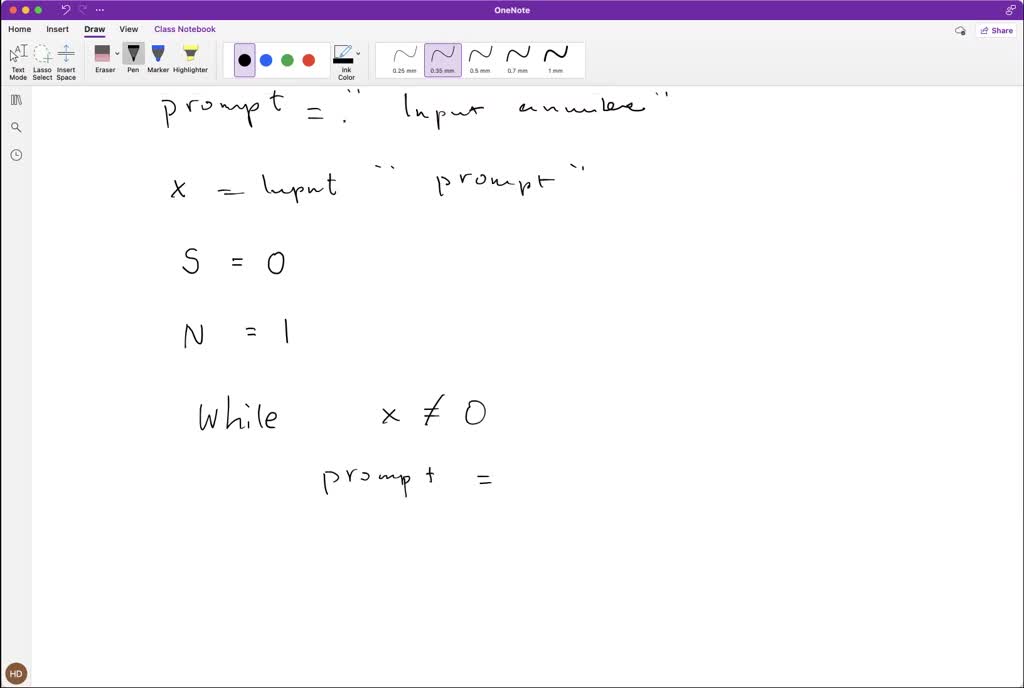 OneNote
Home Insert Draw View Class Notebook Share
Text Mode Lasso Select Insert Space Eraser Pen Marker Highlighter Ink Color 0.25 mm 0.35 mm 0.5 mm 0.7 mm 1 mm
prompt = " Input "
x = Input " prompt "
S = 0
N = 1
While x ≠ 0
prompt =
HD